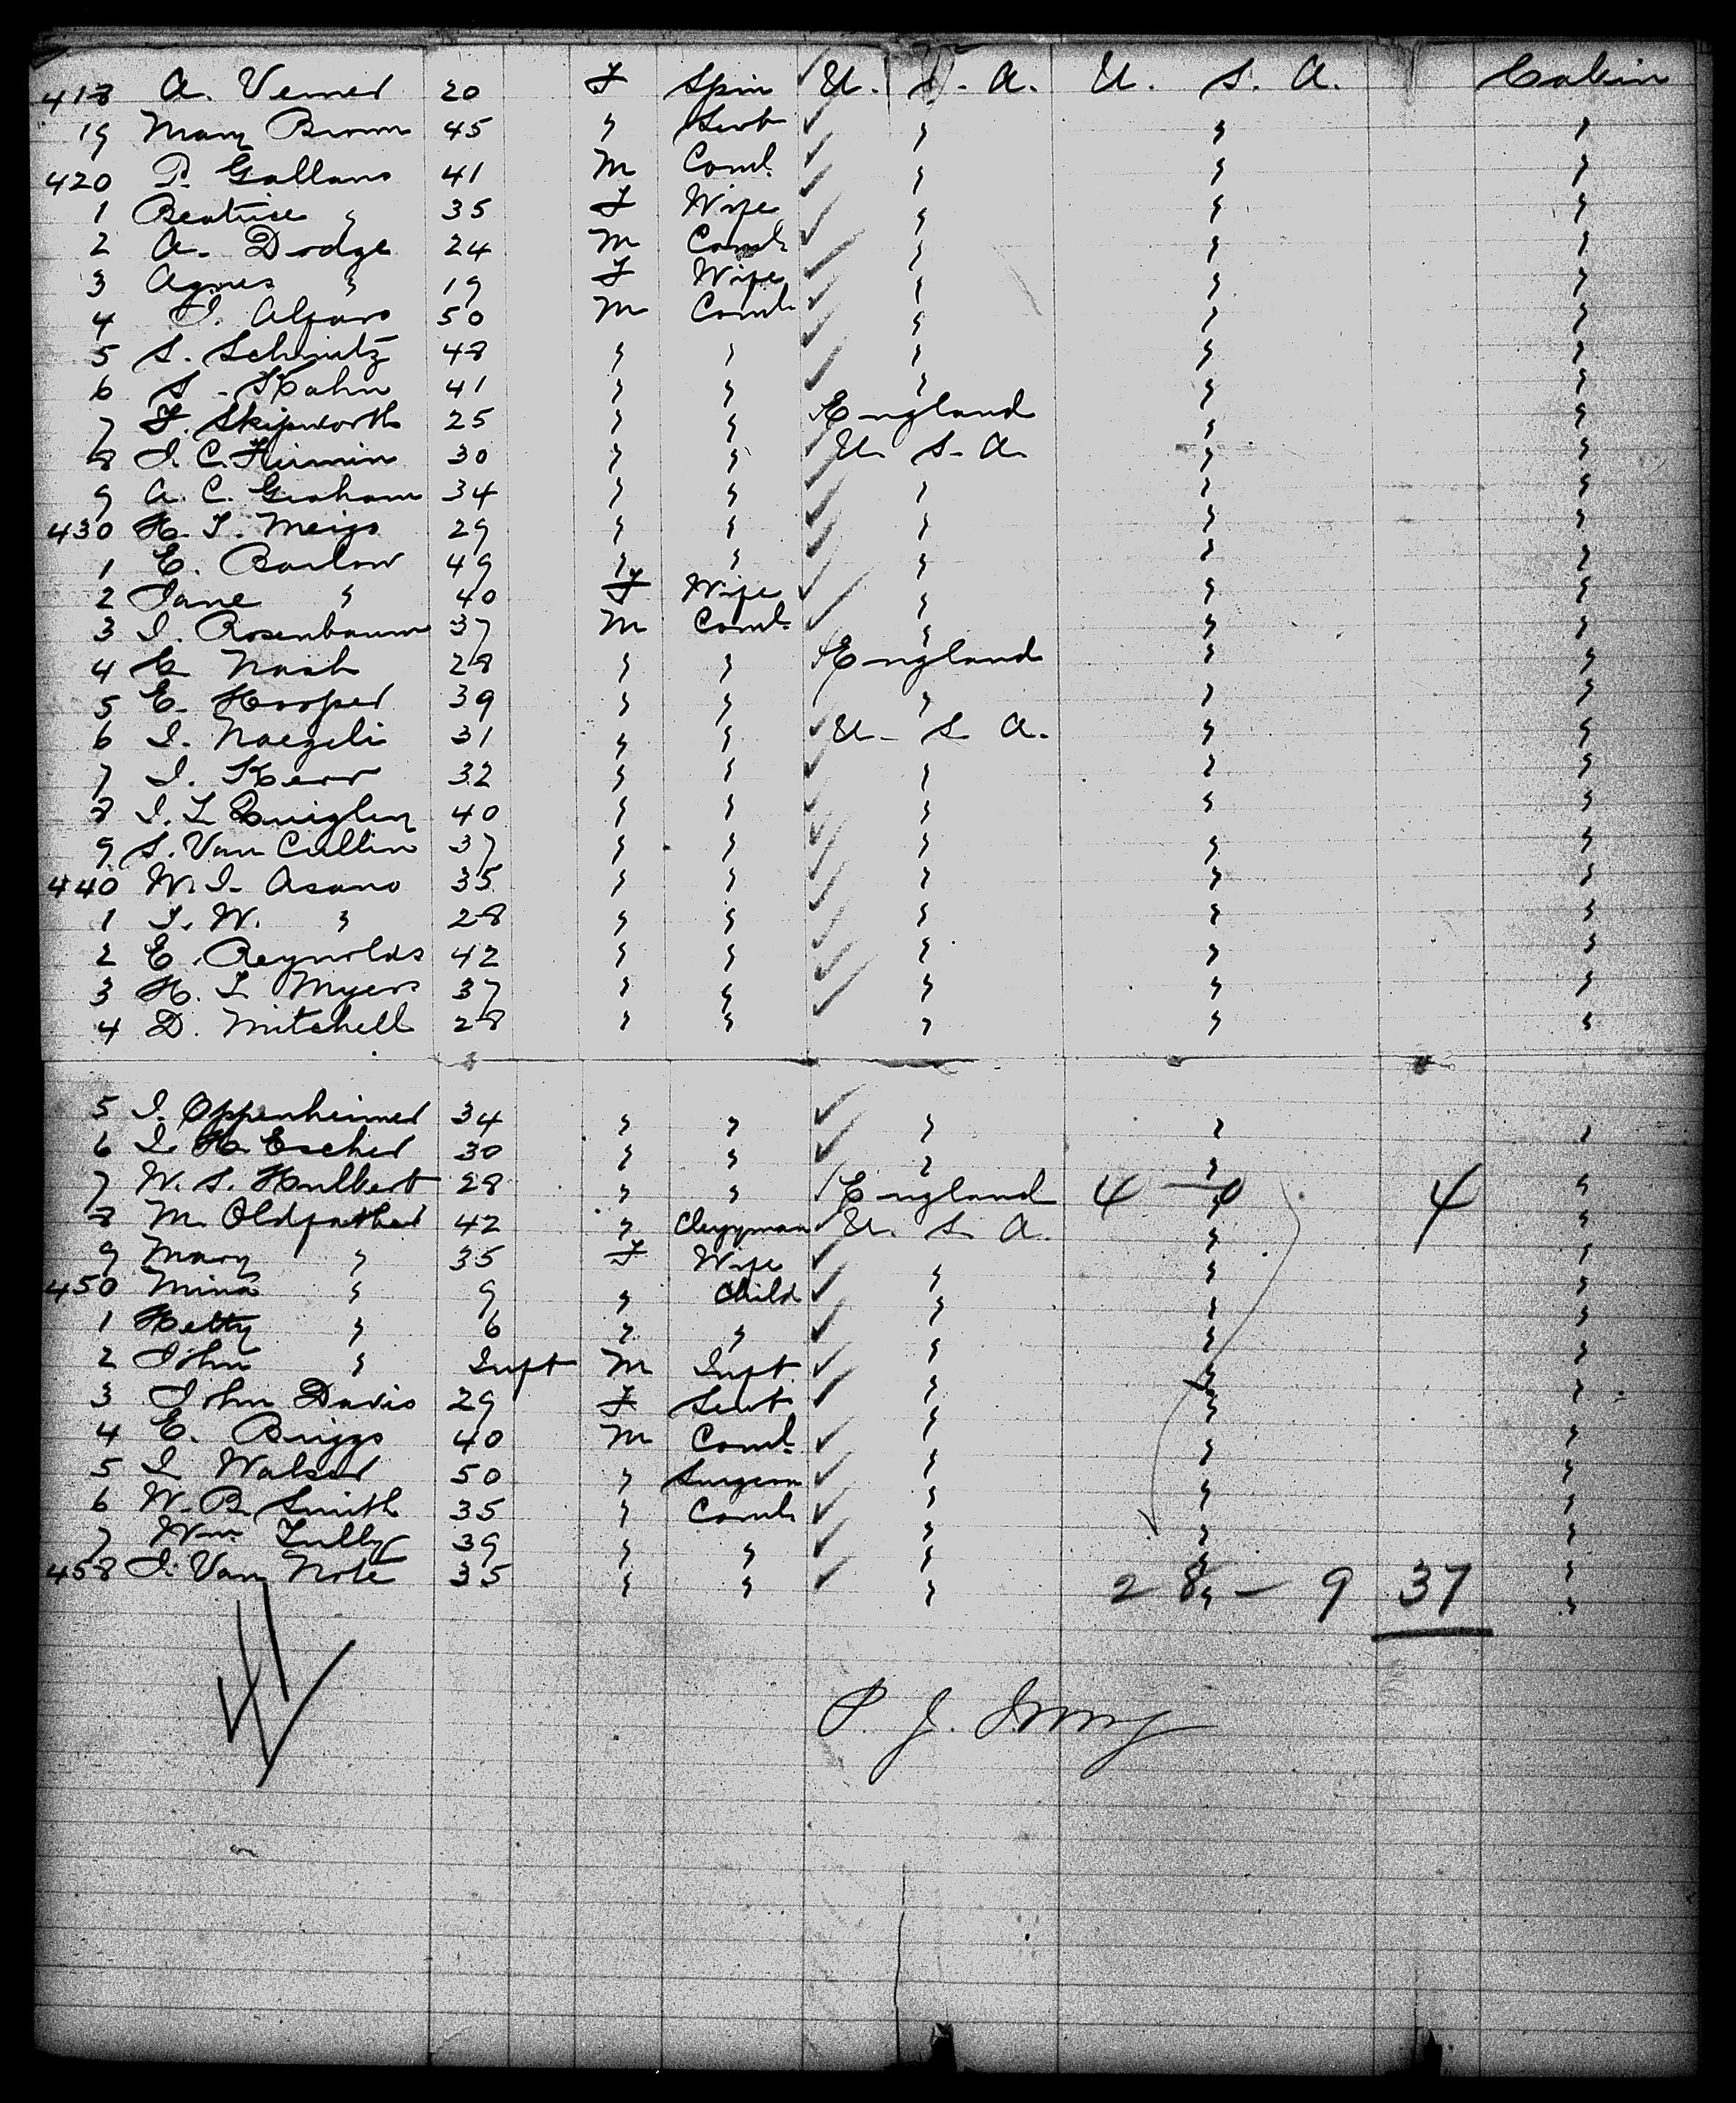 418 A. Verner 20 F Spin U. S. A. U. S. A. Cabin
19 Mary Brown 45 " Servt " " "
420 P. Gallano 41 M Coml. " " "
1 Beatrice " 35 F Wife " " "
2 A. Dodge 24 M Coml. " " "
3 Agnes " 19 F Wife " " "
4 J. Alfaro 50 M Coml. " " "
5 S. Schmitz 48 " " " " "
6 S. Kahn 41 " " " " "
7 F. Skipworth 25 " " England " "
8 J. C. Firmin 30 " " U. S. A. " "
9 A. C. Graham 34 " " " " "
430 H. T. Meigs 29 " " " " "
1 E. Barlow 49 " " " " "
2 Jane " 40 F Wife " " "
3 I. Rosenbaum 37 M Coml. " " "
4 E. Nash 28 " " England " "
5 E. Hooper 39 " " " " "
6 I. Naegeli 31 " " U. S. A. " "
7 J. Kerr 32 " " " " "
8 J. L. Quigley 40 " " " " "
9 S. Van Cullin 37 " " " " "
440 W. I. Asano 35 " " " " "
1 T. W. " 28 " " " " "
2 E. Reynolds 42 " " " " "
3 H. L. Myers 37 " " " " "
4 D. Mitchell 28 " " " " "
5 J. Oppenheimer 34 " " " " "
6 J. H. Escher 30 " " " " "
7 W. S. Hulbert 28 " " England 4 - 0 " 4 "
8 M. Oldfather 42 " Clergyman U. S. A. " "
9 Mary " 35 F Wife " " "
450 Mina " 9 " Child " " "
1 Hetty " 6 " " " " "
2 John " Inft M Inft. " " "
3 John Davis 29 F Servt " " "
4 E. Briggs 40 M Coml. " " "
5 J. Walser 50 " Surgeon " " "
6 W. B. Smith 35 " Coml. " " "
7 Wm. Tully 39 " " " " "
458 J. Van Note 35 " " " " "
28 - 9 37
P. J.